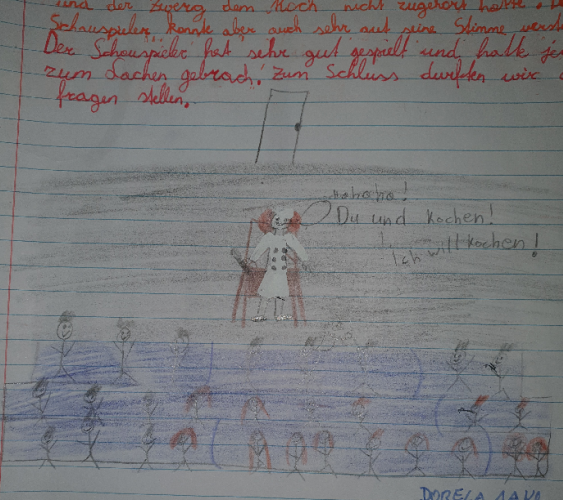 und der Zwerg dem Koch nicht zugehört hatte.
Schauspieler, konnte aber auch sehr gut seine Stimme
Der Scheuspieler hat sehr gut gespielt und hatte
zum Lachen gebrach! Zum Schluss durften wir
fragen stellen.
hahaha!
Du und kochen!
Ich will kochen!